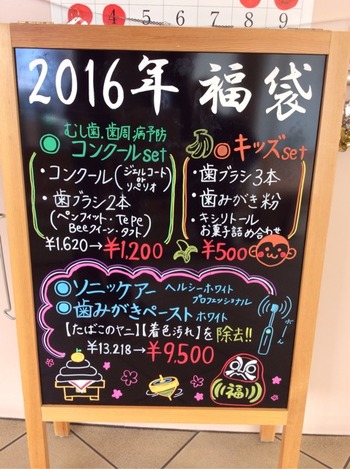 4 8 9
2016年 福袋
むし歯、歯周病予防
コンクールset
・コンクール(ジェルコート or リペリオ)
・歯ブラシ2本
(ペンフィット・Tepe
Beeクイーン・タフト)
¥1.620→¥1.200
キッズset
・歯ブラシ3本
・歯みがき粉
・キシリトール
お菓子詰め合わせ
¥500
ソニッケアー ヘルシーホワイト
プロフェッショナル
歯みがきペースト ホワイト
【たばこのヤニ】【着色汚れ】を除去!!
¥13.218→¥9.500
福